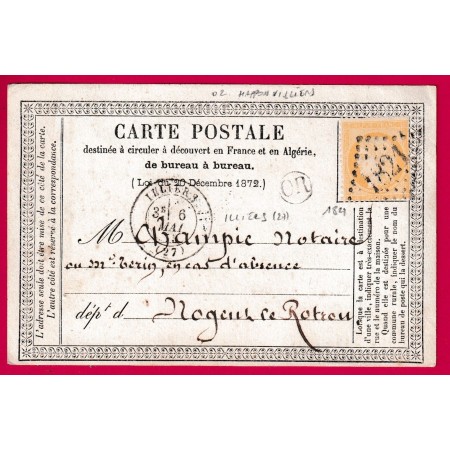 DE HAPPONVILLIERS
CARTE POSTALE
destinée à circuler à découvert en France et en Algérie,
de bureau à bureau.
(Loi du 20 Décembre 1872.)
OR
1821
ILLIERS
3E
6
MAI
(27)
ILLIERS (27)
1821
M Champic Notaire
ou Mr Terin, en cas d'absence
dépt d. Nogent le Rotrou
L'adresse seule doit être mise de ce côté de la carte.
L'autre côté est réservé à la correspondance.
Lorsque la carte est à destination
d'une ville, indiquer très-exactement la
rue et le numéro de la maison.
Quand elle est destinée pour une
commune rurale, indiquer le nom du
bureau de poste qui la dessert.